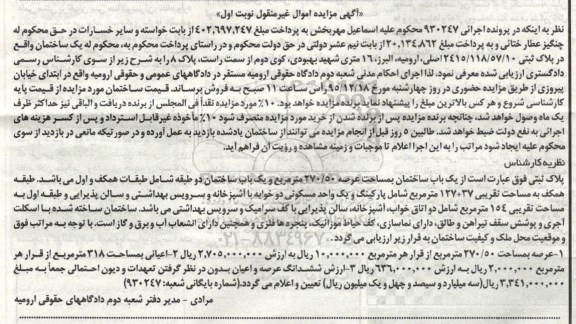 «آگهی مزایده اموال غیرمنقول نوبت اول»
نظر به اینکه در پرونده اجرائی ۹۳۰۲۴۷ محکوم علیه اسماعیل مهربخش به پرداخت مبلغ ۴۰۲,۶۹۷,۲۴۷ از بابت خواسته و سایر خسارات در حق محکوم له
چنگیز عطار ختائی و به پرداخت مبلغ ۲۰,۱۳۴,۸۶۲ از بابت نیم عشر دولتی در حق دولت محکوم و در راستای پرداخت محکوم به، محکوم له یک ساختمان واقع
در پلاک ثبتی ۲۴۱۵/۱۱۸/۵۷/۱۰ اصلی، ارومیه، البرز، ۱۶ متری شهید بهبودی، کوی دوم از سمت راست، پلاک ۸ را به شرح زیر از سوی کارشناس رسمی
دادگستری ارزیابی شده معرفی نمود. لذا اجرای احکام مدنی شعبه دوم دادگاه حقوقی ارومیه مستقر در دادگاههای عمومی و حقوقی ارومیه واقع در ابتدای خیابان
پیروزی از طریق مزایده حضوری در روز چهارشنبه مورخ ۹۵/۱۲/۱۸ راس ساعت ۱۱ صبح به فروش برساند. قیمت ساختمان مورد مزایده از قیمت پایه
کارشناسی شروع و هر کس بالاترین مبلغ را پیشنهاد نماید برنده مزایده خواهد بود. ۱۰٪ مورد مزایده نقداً فی المجلس از برنده دریافت و الباقی نیز حداکثر ظرف
یک ماه وصول خواهد شد، چنانچه برنده مزایده پس از برنده شدن از خرید مورد مزایده منصرف شود ۱۰٪ مأخوذه غیرقابل استرداد و پس از کسر هزینه های
اجرائی به نفع دولت ضبط خواهد شد. طالبین ۵ روز قبل از انجام مزایده می توانند از ساختمان یادشده بازدید به عمل آورده و در صورتیکه مانعی در بازدید از سوی
محکوم علیه ایجاد شود مراتب را به این اجرا اعلام تا موجبات و زمینه مشاهده و رؤیت آن فراهم آید.
نظریه کارشناس
پلاک ثبتی فوق عبارت است از یک باب ساختمان بمساحت عرصه ۲۷۰/۵۰ مترمربع و یک باب ساختمان دو طبقه شامل طبقات همکف و اول می باشد. طبقه
همکف به مساحت تقریبی ۱۲۷۰۳۷ مترمربع شامل پارکینگ و یک واحد مسکونی دو خوابه با آشپزخانه و سرویس بهداشتی و سالن پذیرایی و طبقه اول به
مساحت تقریبی ۱۵۴ مترمربع شامل دو اتاق خواب، آشپزخانه، سالن پذیرایی با کف سرامیک و سرویس بهداشتی می باشد. ساختمان ساخته شده با اسکلت
آجری و پوشش سقف تیرآهن و طاق، دارای نماسازی، کف حیاط موزائیک، پنجره ها فلزی و همچنین دارای انشعاب آب و برق و گاز است. با توجه به مراتب فوق
و موقعیت محل ملک و کیفیت ساختمان به قرار زیر ارزیابی می گردد.
۱-عرصه بمساحت ۲۷۰/۵۰ مترمربع از قرار هر مترمربع ۱۰,۰۰۰,۰۰۰ ریال به ارزش ۲,۷۰۵,۰۰۰,۰۰۰ ریال ۲-اعیانی بمساحت ۳۱۸ مترمربع از قرار هر
مترمربع ۲,۰۰۰,۰۰۰ ریال به ارزش ۶۳۶,۰۰۰,۰۰۰ ریال ۳-ارزش ششدانگ عرصه و اعیان بدون در نظر گرفتن تعهدات و دیون احتمالی جمعاً به مبلغ
۳,۳۴۱,۰۰۰,۰۰۰ ریال(سه میلیارد و سیصد و چهل و یک میلیون ریال) تعیین و اعلام می گردد.(شماره بایگانی شعبه: ۹۳۰۲۴۷)
مرادی - مدیر دفتر شعبه دوم دادگاههای حقوقی ارومیه